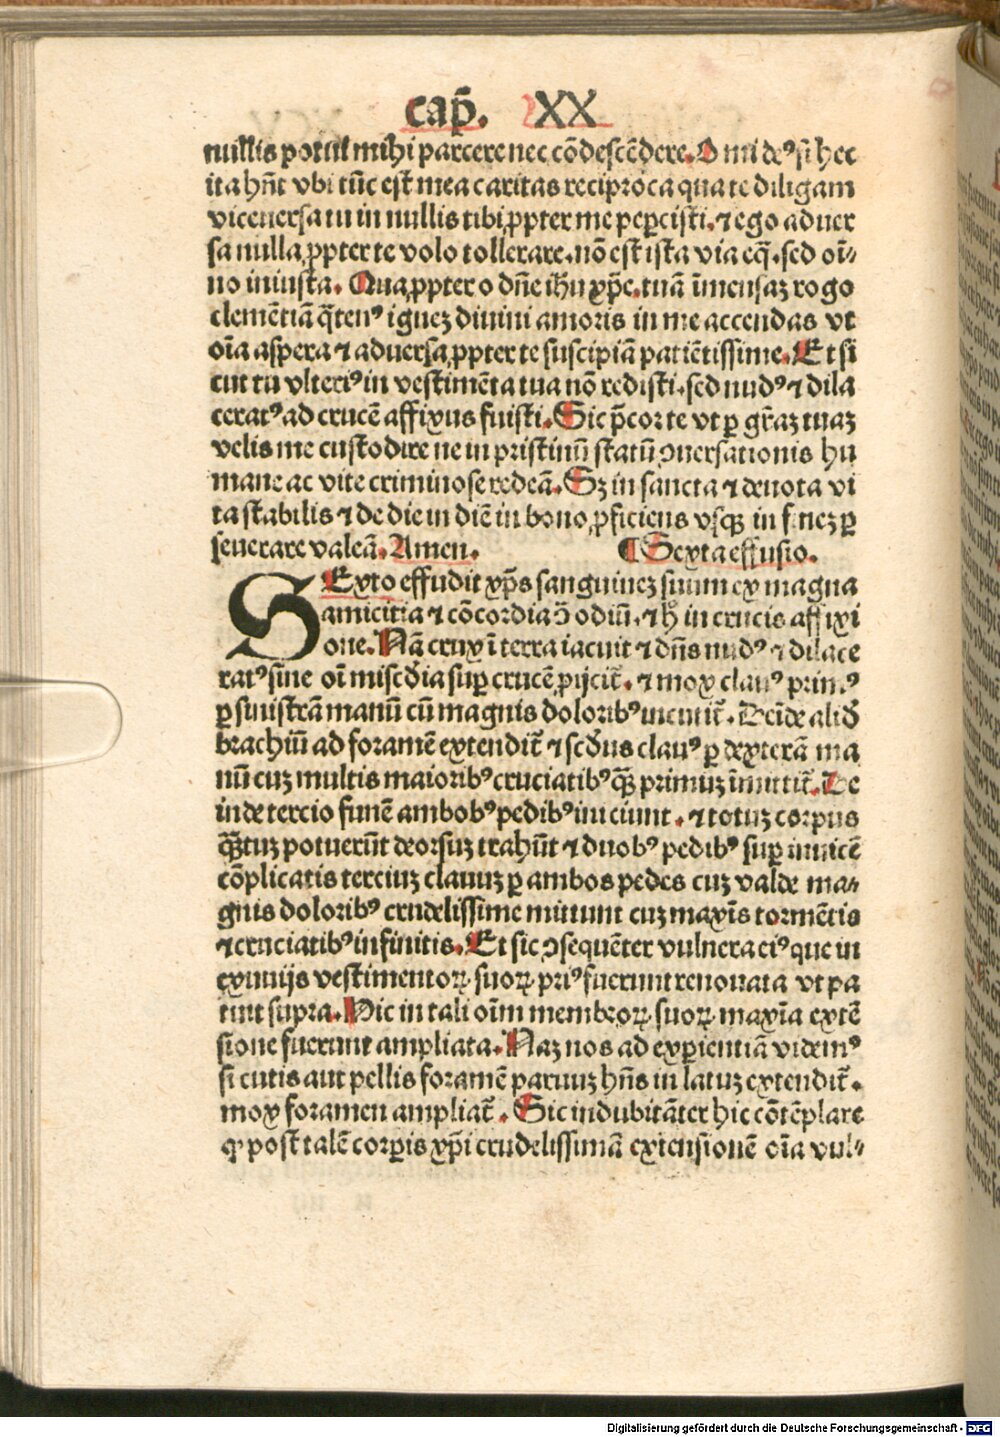 cap̃. XX
nullis potuit mihi parcere nec cōdescēdere. O mi deꝰ si hec
ita hñt vbi tūc est mea caritas reciproca qua te diligam
viceuersa tu in nullis tibi ꝓpter me peꝑcisti. ⁊ ego aduer
sa nulla ꝓpter te volo tollerare. nō est ista via eq̄. sed oī⸗
no iniusta. Qua ꝓpter o dñe ihū xp̄e. tuā īmensaz rogo
clemētiā q̄tenꝰ ignez diuini amoris in me accendas vt
oīa aspera ⁊ aduersa ꝓpter te suscipiā patiētissime. Et si
cut tu vlteriꝰ in vestimēta tua nō redisti. sed nudꝰ ⁊ dila
ceratꝰ ad crucē affixus fuisti. Sic p̄cor te vt ꝑ gr̄az tuaz
velis me custodire ne in pristinū statū ↄuersationis hu
mane ac vite criminose redeā. Sz in sancta ⁊ deuota vi
ta stabilis ⁊ de die in diē in bono ꝓficiens vsqꝫ in finez ꝑ
seuerare valeā. Amen. ¶ Sexta effusio.
SExto effudit xp̄s sanguinez suum ex magna
amicitia ⁊ cōcordia ↄ̄ odiū. ⁊ h̄ in crucis affixi
one. Nā crux ī terra iacuit ⁊ dñs nudꝰ ⁊ dilace
ratꝰ sine oī mis̄cdia suꝑ crucē ꝓijcit̄. ⁊ mox clauꝰ primꝰ
ꝑ sinistrā manū cū magnis doloribꝰ inmitit̄. Deīde aliđ
brachiū ad foramē extendit̄ ⁊ scđus clauꝰ ꝑ dexterā ma
nū cuz multis maioribꝰ cruciatibꝰ qꝫ̄ primuz īmittit̄. De
inde tercio funē ambobꝰ pedibꝰ iniciunt. ⁊ totuz corpus
qꝫ̄tuz potuerūt deorsuz trahūt ⁊ duobꝰ pedibꝰ suꝑ inuicē
cōplicatis terciuz clauuz ꝑ ambos pedes cuz valde ma⸗
gnis doloribꝰ crudelissime mittunt cuz maxīs tormētis
⁊ cruciatibꝰ infinitis. Et sic ↄsequēter vulnera eiꝰ que in
exuuijs vestimentoꝝ suoꝝ priꝰ fuerunt renouata vt pa
tuit supra. Hic in tali oīm membroꝝ suoꝝ maxīa extē
sione fuerunt ampliata. Naz nos ad exꝑientiā videmꝰ
si cutis aut pellis foramē paruuz hñs in latuz extendit̄.
mox foramen ampliat̄. Sic indubitāter hic cōtēplare
ꝙ post talē corꝑis xp̄i crudelissimā extensionē oīa vul⸗
Digitalisierung gefördert durch die Deutsche Forschungsgemeinschaft - DFG